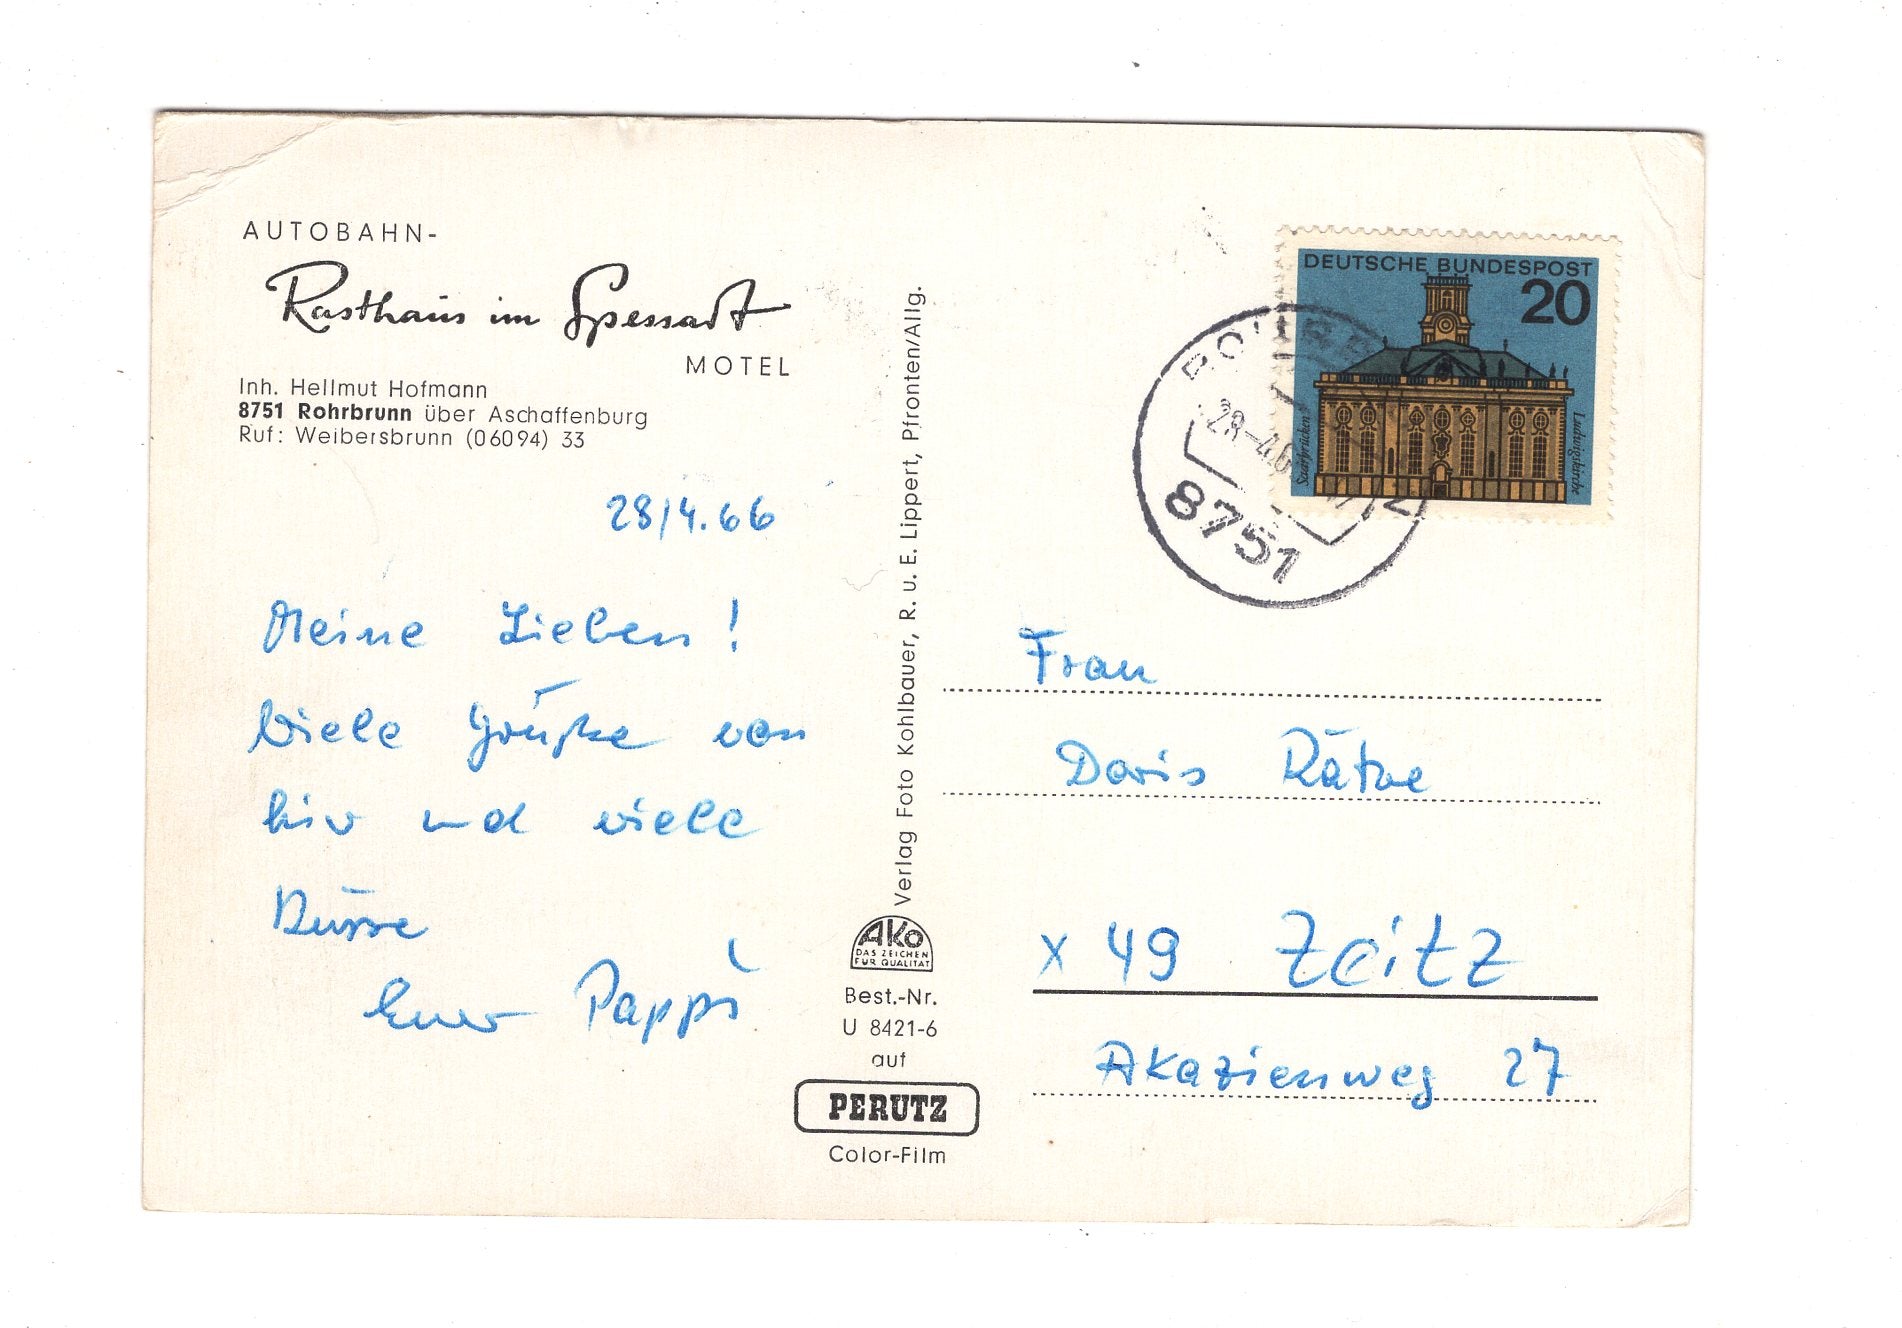 AUTOBAHN-
Rasthaus im Spessart
MOTEL
Inh. Hellmut Hofmann
8751 Rohrbrunn über Aschaffenburg
Ruf: Weibersbrunn (06094) 33
28/4.66
Meine Lieben!
Viele Grüße von
hier und viele
Büsse
Euer Pappi
Verlag Foto Kohlbauer, R. u. E. Lippert, Pfronten/Allg.
AKo
DAS ZEICHEN
FÜR QUALITÄT
Best.-Nr.
U 8421-6
auf
PERUTZ
Color-Film
DEUTSCHE BUNDESPOST
20
Saarbrücken
Ludwigskirche
28-4.6
8751
Frau
Doris
x 49 Zeitz
Akazienweg 27